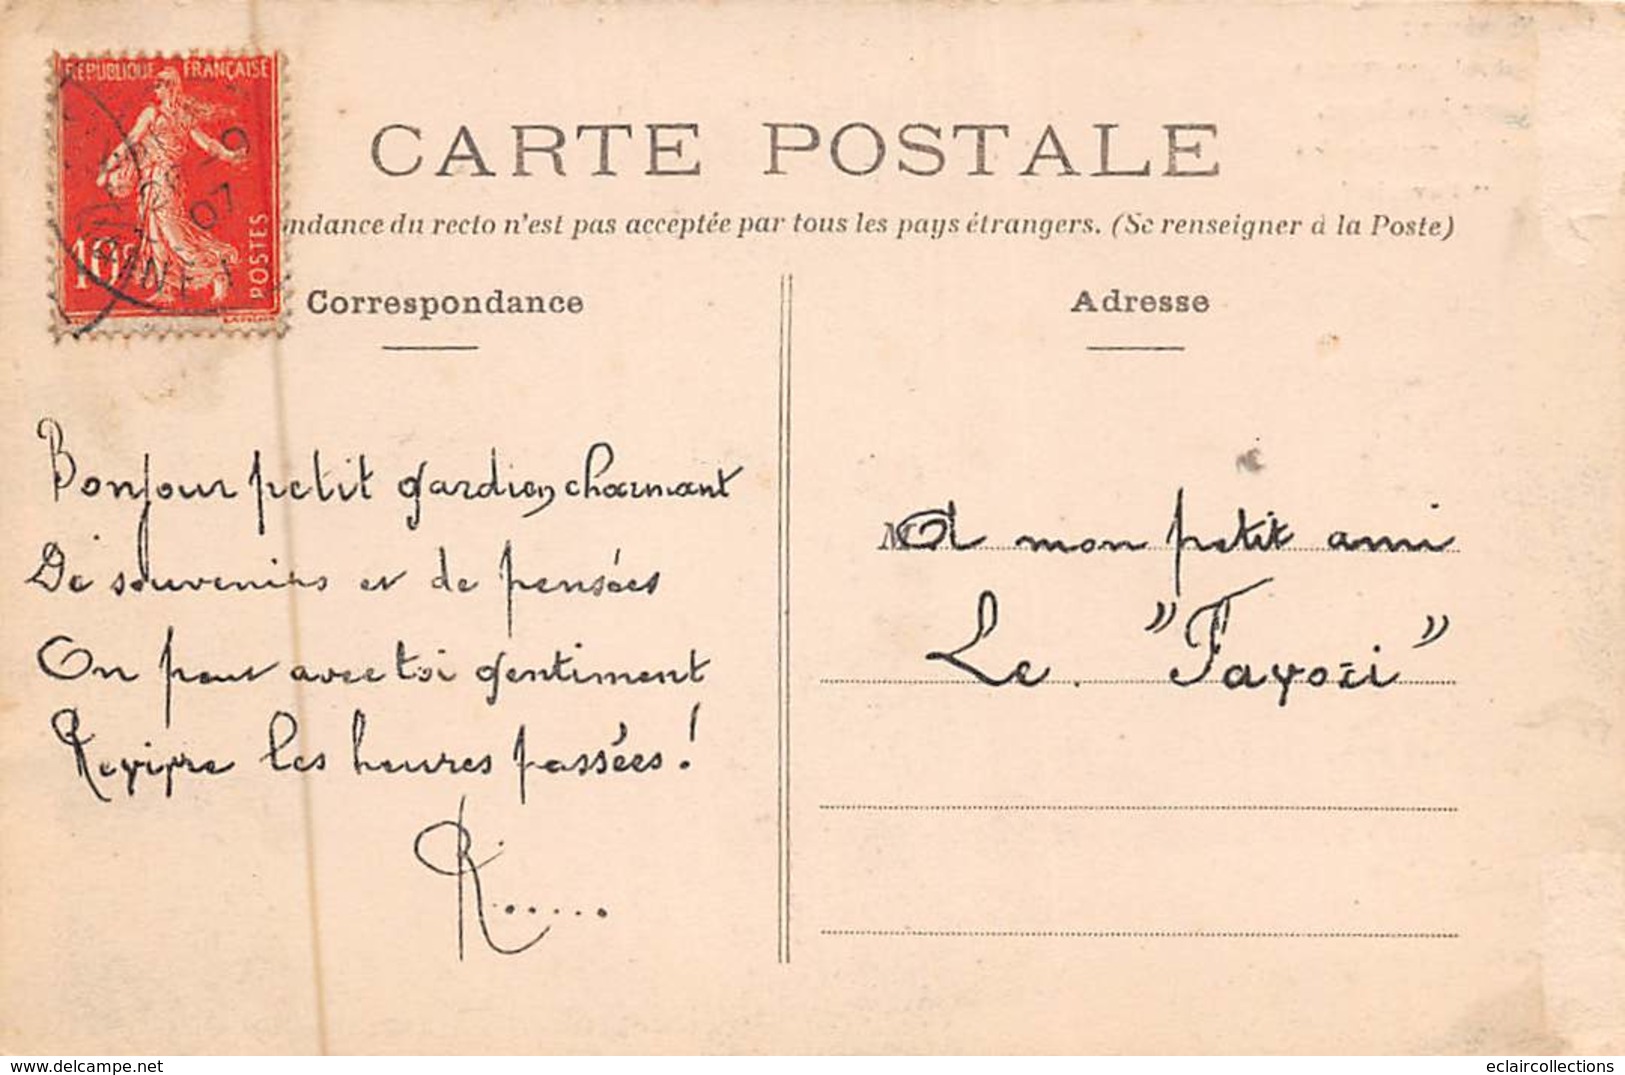 RÉPUBLIQUE FRANÇAISE
10c
POSTES
07
CARTE POSTALE
ndance du recto n'est pas acceptée par tous les pays étrangers. (Se renseigner à la Poste)
Correspondance
Adresse
Bonjour petit gardien, charmant
De souvenirs et de pensées
On peut avec toi gentiment
Revivre les heures passées !
R.....
M A mon petit ami
Le "Favori"
eclaircollections